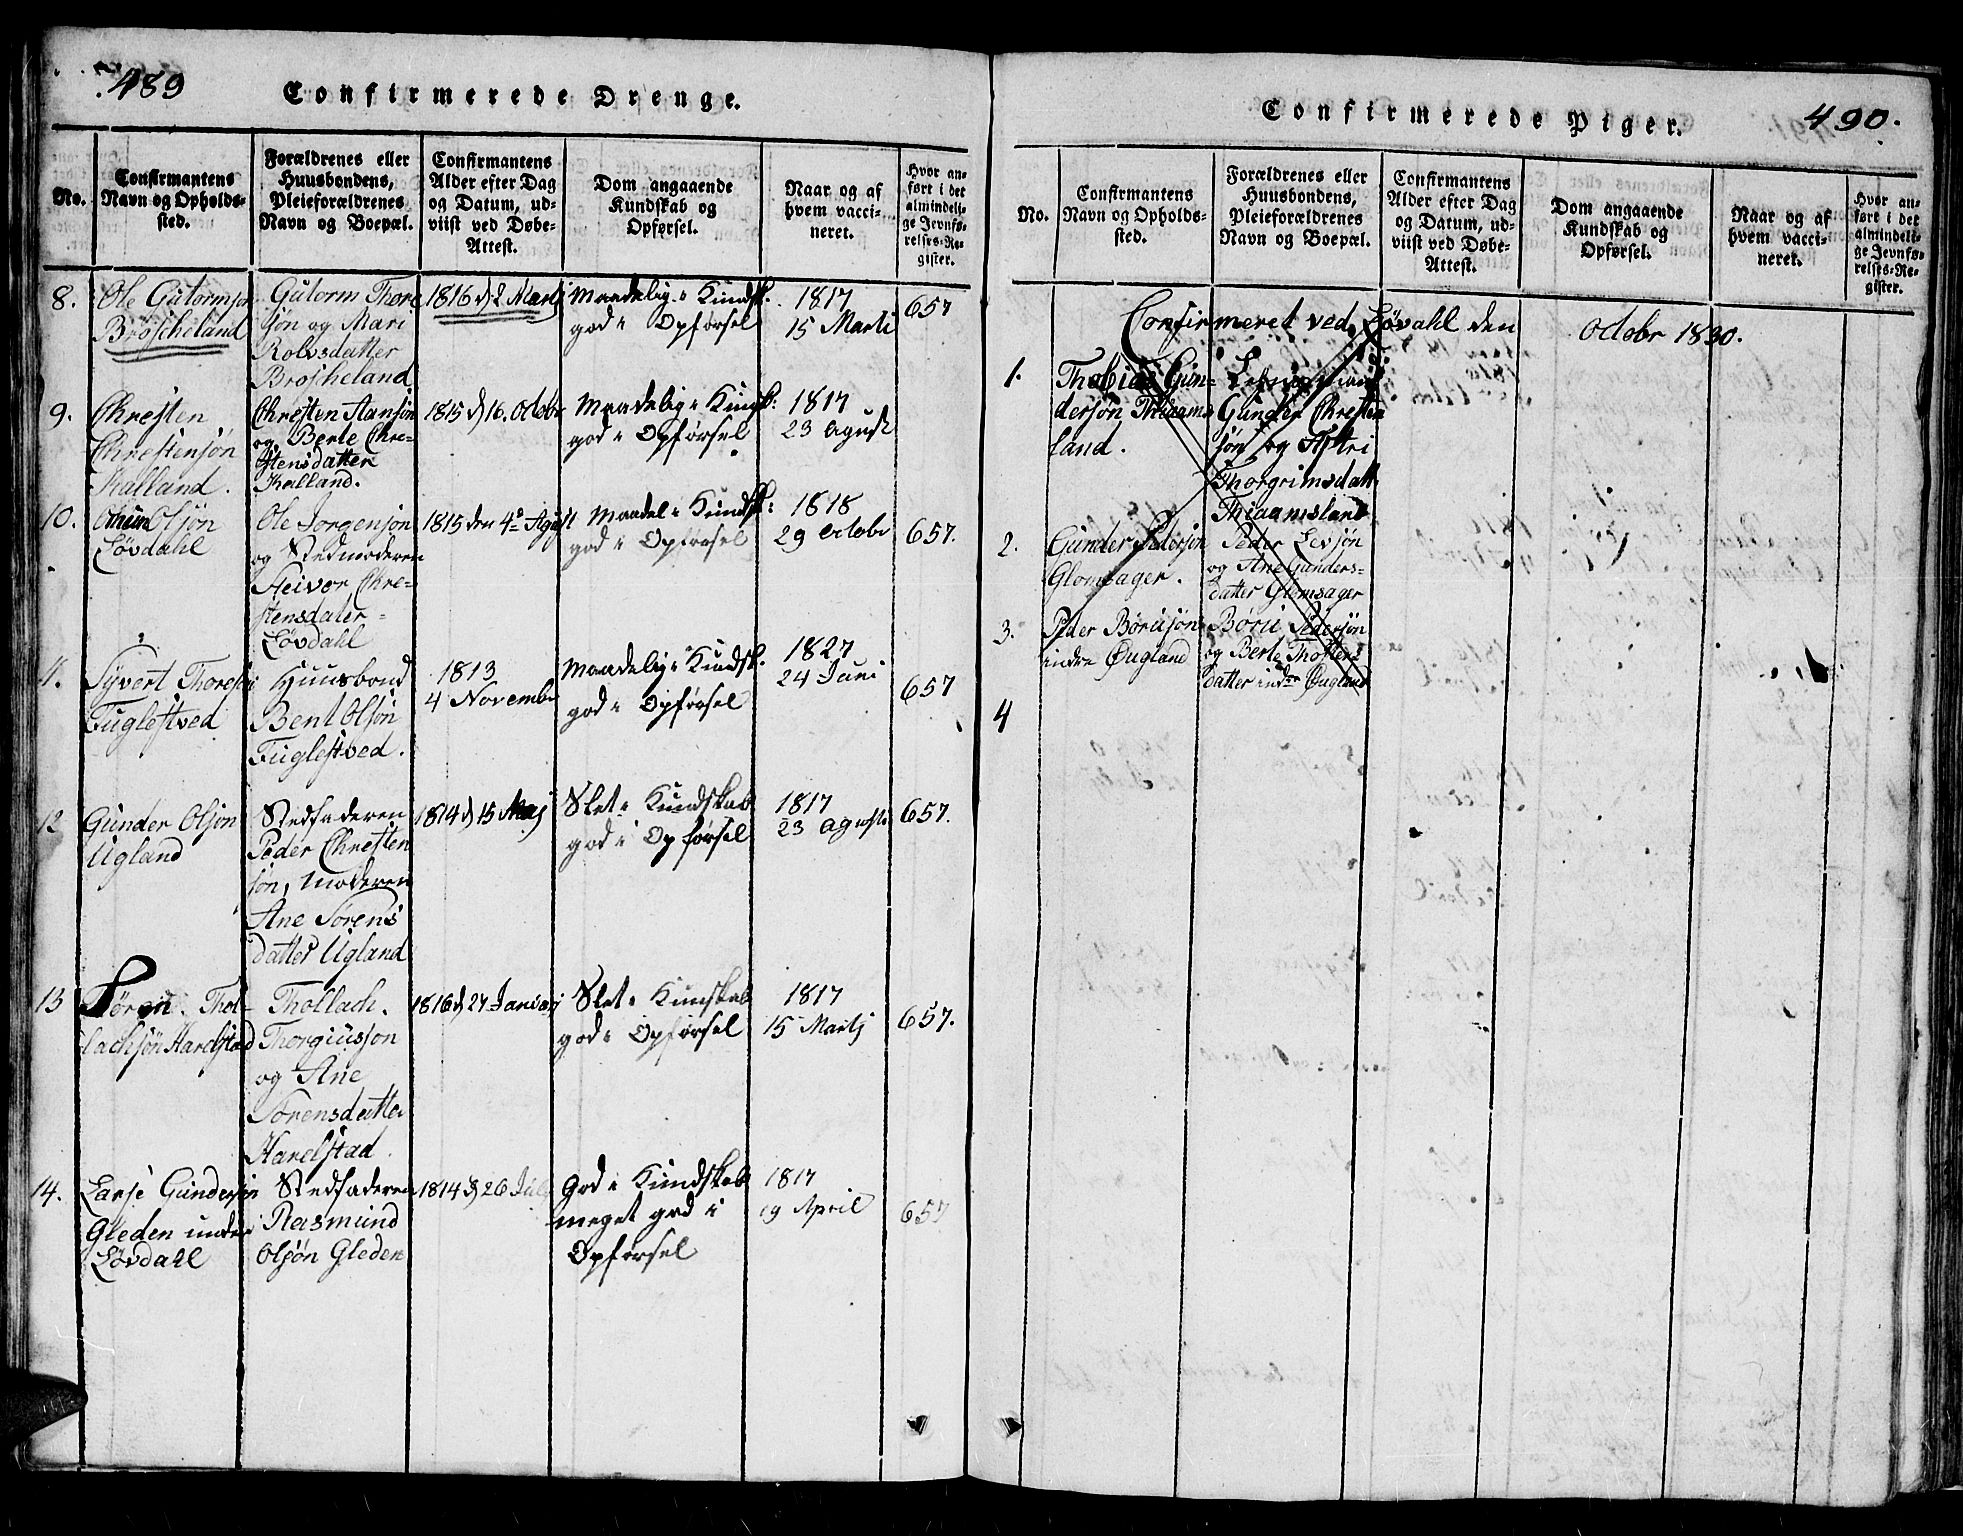 489
Confirmerede Drenge.
No.
Confirmantens
Navn og Opholds-
sted.
Forældrenes eller
Huusbondens,
Pleieforældrenes
Navn og Boepæl.
Confirmantens
Alder efter Dag
og Datum, ud-
viist ved Døbe-
Attest.
Dom angaaende
Kundskab og
Opførsel.
Naar og af
hvem vacci-
neret.
Hvor an-
ført i det
almindeli-
ge Jevnfø-
relses-Re-
gister.
8.
Ole Gutormsøn
Broscheland
Gutorm Thore
søn og Mari
Rolvsdatter
Broscheland
1816 d 2 Martj
Maadelig i Kundsk.
god i Opførsel
1817
15 Marti
657
9.
Chresten
Chrestensøn
Kalland.
Chresten Aansøn
og Berte Chre-
stensdatter
Kalland.
1815 d 16. Octobr
Maadelig i Kundsk:
god i Opførsel
1817
23 Agust
10.
Olsøn
Løvdahl
Ole Jorgensøn
og Stedmoderen
Aeivor Chre-
stensdater
Løvdahl
1815 den 4de Agust
Maadel i Kundsk:
god i Opførsel
1818
29 Octobr
657.
11.
Syvert Thoresøn
Fuglestved
Huusbond
Bent Olsøn
Fuglestved.
1813
4 Novembr
Maadelig i Kundsk.
god i Opførsel
1827
24 Juni
657
12
Gunder Olsøn
Ugland
Stedfaderen
Peder Chresten
søn, Moderen
Ane Sørens
datter Ugland
1814 d 15 Maj
Slet i Kundskab
god i Opførsel
1817
23 Agusti
657.
13
Søren Thol-
lachsøn Harelstad
Thollach
Thorgiusson
og Ane
Sorensdatter
Harelstad.
1816 d 27 Januarj
Slet i Kunskab
god i Opførsel
1817
15 Martj
657.
14.
Larse Gundersøn
Gleden under
Løvdahl
Stedfaderen
Rasmund
Olsøn Gleden
1814 d 26 Juli
God i Kundskab
meget god i
Opførsel
1817
19 April
657
490.
Confirmerede Piger.
No.
Confirmantens
Navn og Opholds-
sted.
Forældrenes eller
Huusbondens,
Pleieforældrenes
Navn og Boepæl.
Confirmantens
Alder efter Dag
og Datum, ud-
viist ved Døbe-
Attest.
Dom angaaende
Kundskab og
Opførsel.
Naar og af
hvem vacci-
neret.
Hvor an-
ført i det
almindeli-
ge Jevnfø-
relses-Re-
gister.
Confirmeret ved Løvdahl den Octobr 1830.
1.
Thobias Gun-
dersøn Thiaams
land.
Gunder Chresten
søn og Astri
Thorgrimsdatt
Thiaamsland
2.
Gunder Pedersøn
Glomsager.
Peder Levsøn
og Ane Gunders-
datter Glomsager
3.
Peder Børusøn
indre Øugland
Børu Pedersøn
og Berte Thosters
datter indre Øugland
4